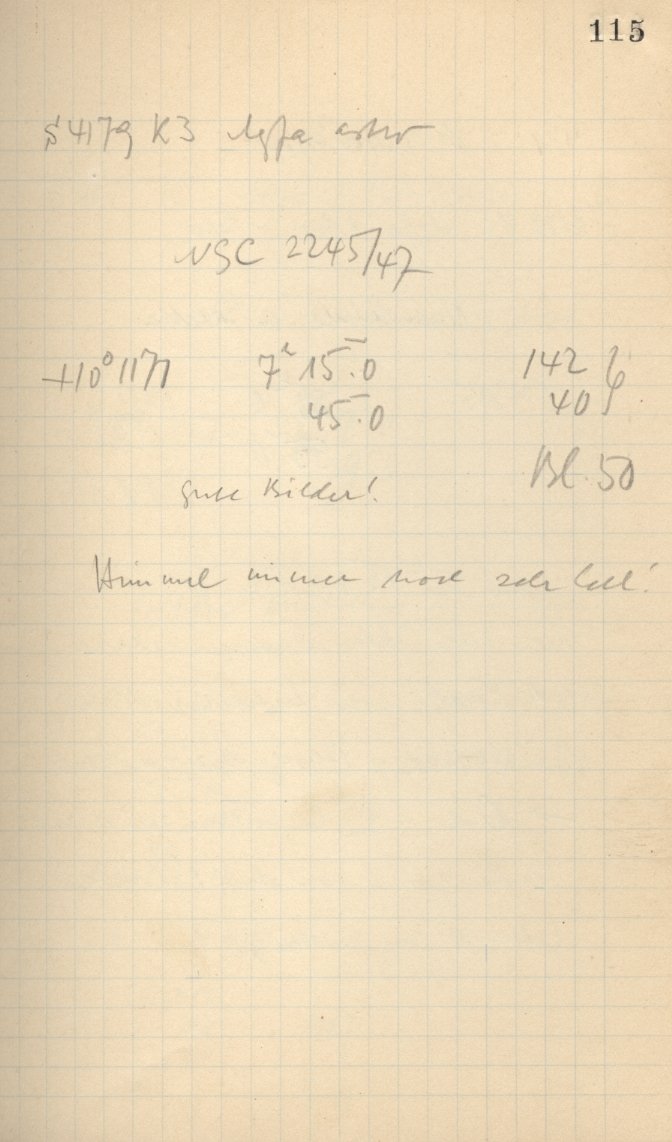 115
S 4179 K3 Agfa astro
NGC 2245/47
+10° 1177 7ʰ 15ᵐ.0 142
45ᵐ.0 40
Bl. 50
gute Bilder!
Himmel immer noch sehr hell!